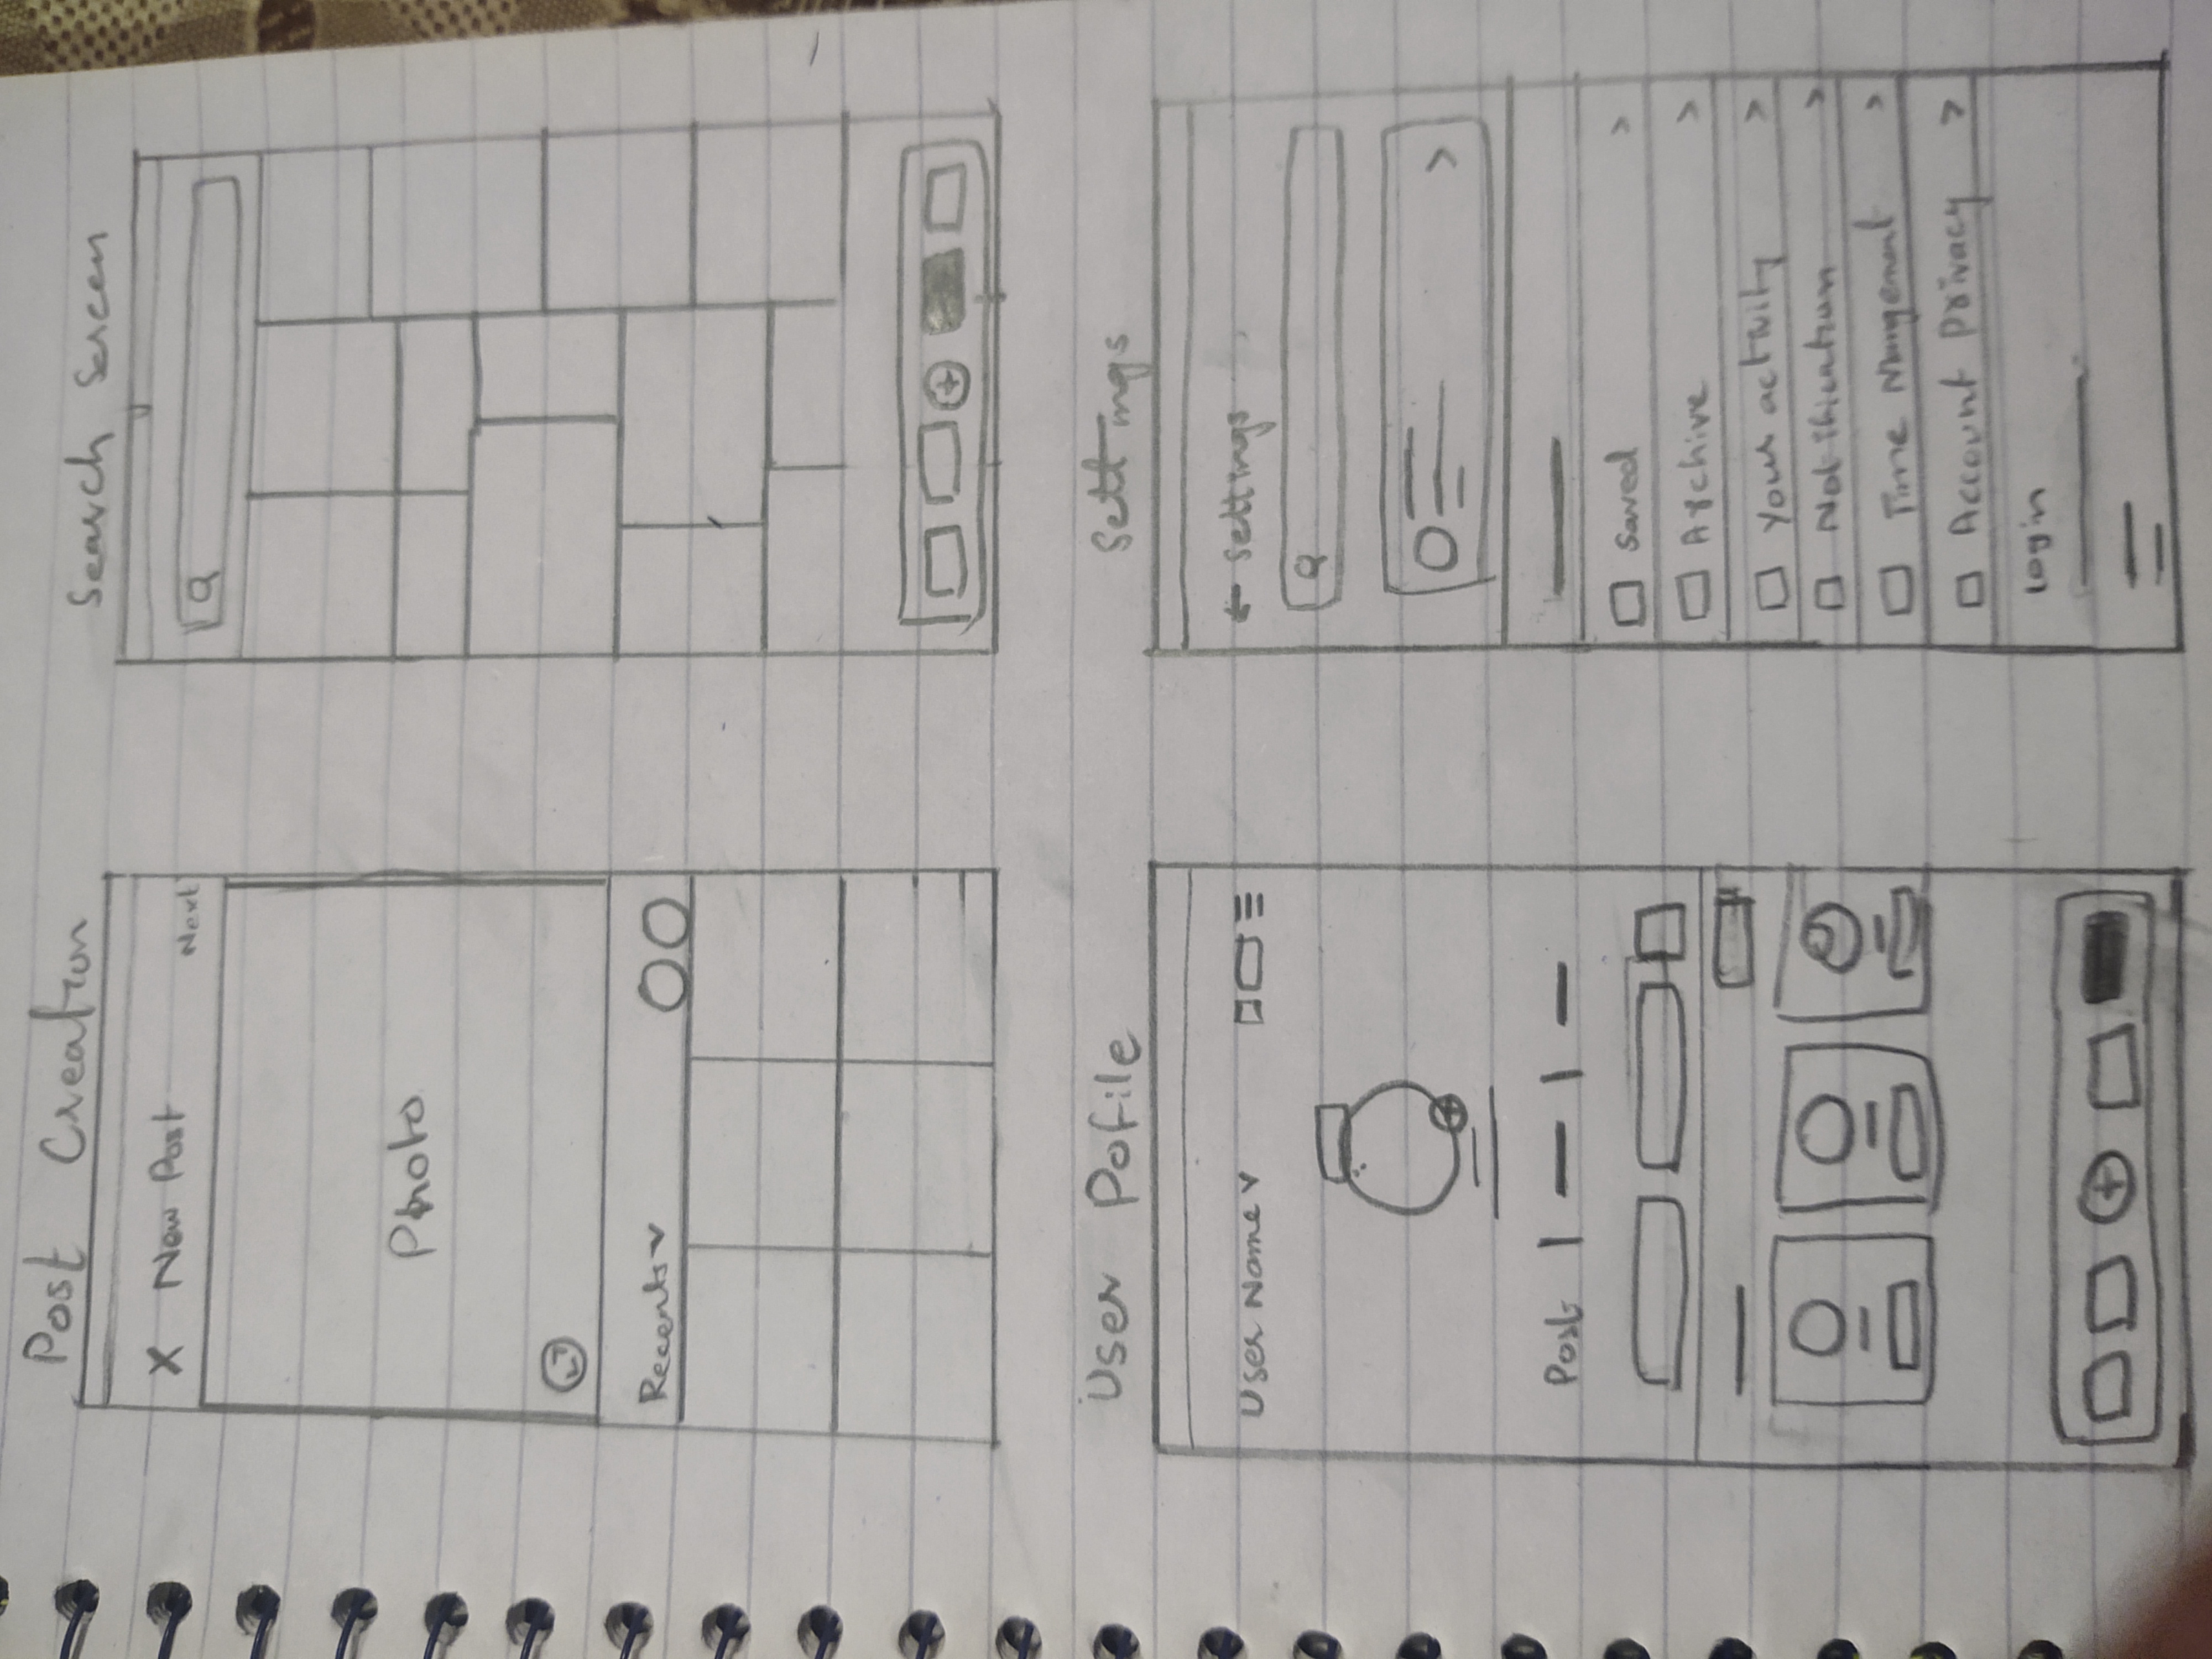 Post Creation
X New Post Next
Photo
Recents
Search Screen
User Pofile
User Name
Post
Settings
← Settings
Saved >
Archive >
Your activity >
Notification >
Time Mangement >
Account Privacy >
Login